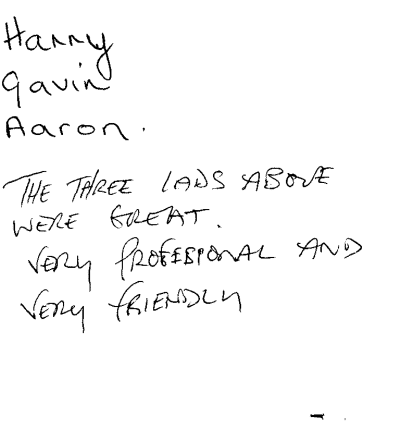 Harry
Gavin
Aaron.
THE THREE LADS ABOVE
WERE GREAT.
VERY PROFESSIONAL AND
VERY FRIENDLY